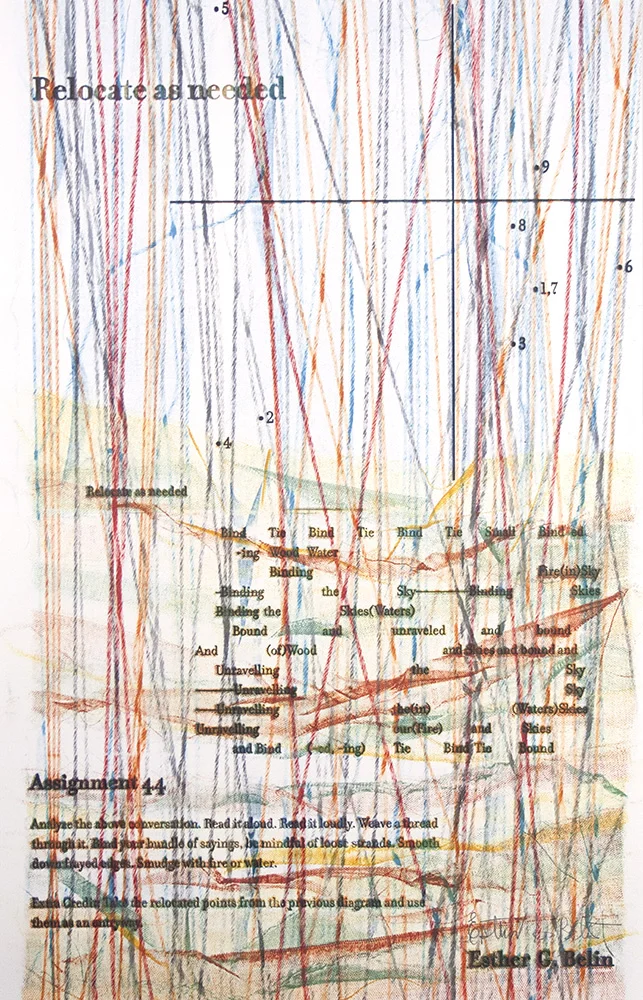 •5
Relocate as needed
•9
•8
•6
•1,7
•3
•2
•4
Relocate as needed
Bind Tie Bind Tie Bind Tie Small Bind ed
-ing Wood Water
Binding Fire(in)Sky
-Binding the Sky Binding Skies
Binding the Skies(Waters)
Bound and unraveled and bound
And (of)Wood and Skies and bound and
Unravelling the Sky
Unravelling Sky
Unravelling the(in) (Waters)Skies
Unravelling our(Fire) and Skies
and Bind (-ed, -ing) Tie Bind Tie Bound
Assignment 44
Analyze the above conversation. Read it aloud. Read it loudly. Weave a thread
through it. Bind your bundle of sayings, be mindful of loose strands. Smooth
down frayed edges. Smudge with fire or water.
Extra Credit: Take the relocated points from the previous diagram and use
them as an entryway.
Esther G. Belin